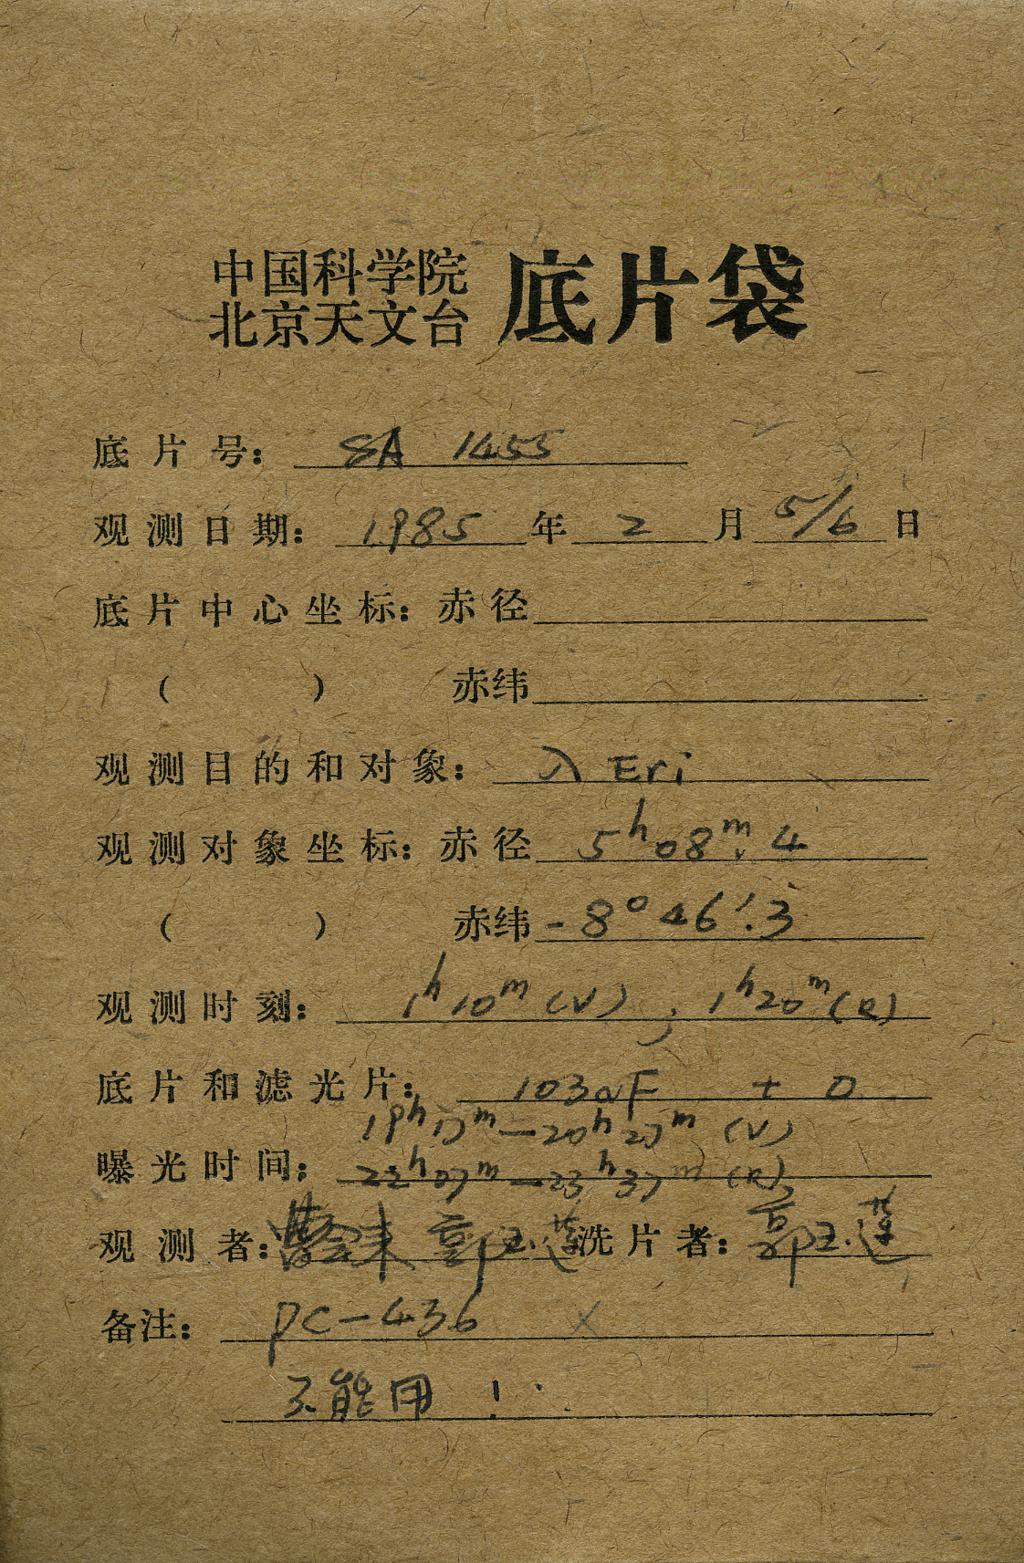 中国科学院
北京天文台 底片袋
底片号： SA 1455
观测日期： 1985 年 2 月 5/6 日
底片中心坐标：赤径
（ ） 赤纬
观测目的和对象： λ Eri
观测对象坐标：赤径 5h08m.4
（ ） 赤纬 -8°46′.3
观测时刻： 1h10m (V) ; 1h20m (R)
底片和滤光片： 103aF + D
19h17m—20h27m (V)
曝光时间： 22h07m—23h37m (R)
观测者： 郭玉莲 洗片者： 郭玉莲
备注： PC-436 ×
不能用！